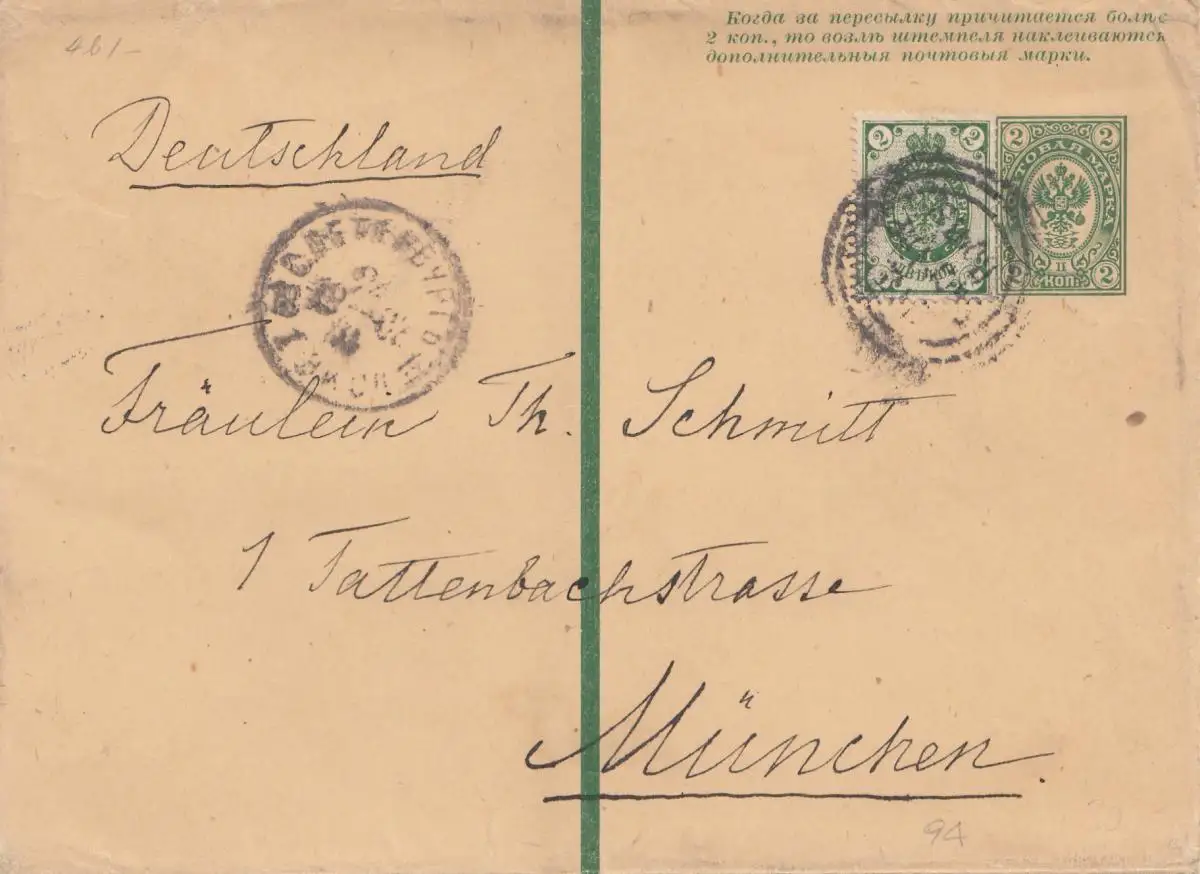 Когда за пересылку причитается болѣе
2 коп., то возлѣ штемпеля наклеиваются
дополнительныя почтовыя марки.
461-
Deutschland
2 2
2 2
2 2
ПОВАЯ МАРКА
II
КОП.
2 2
Fräulein Th. Schmitt
1 Tattenbachstrasse
München.
94